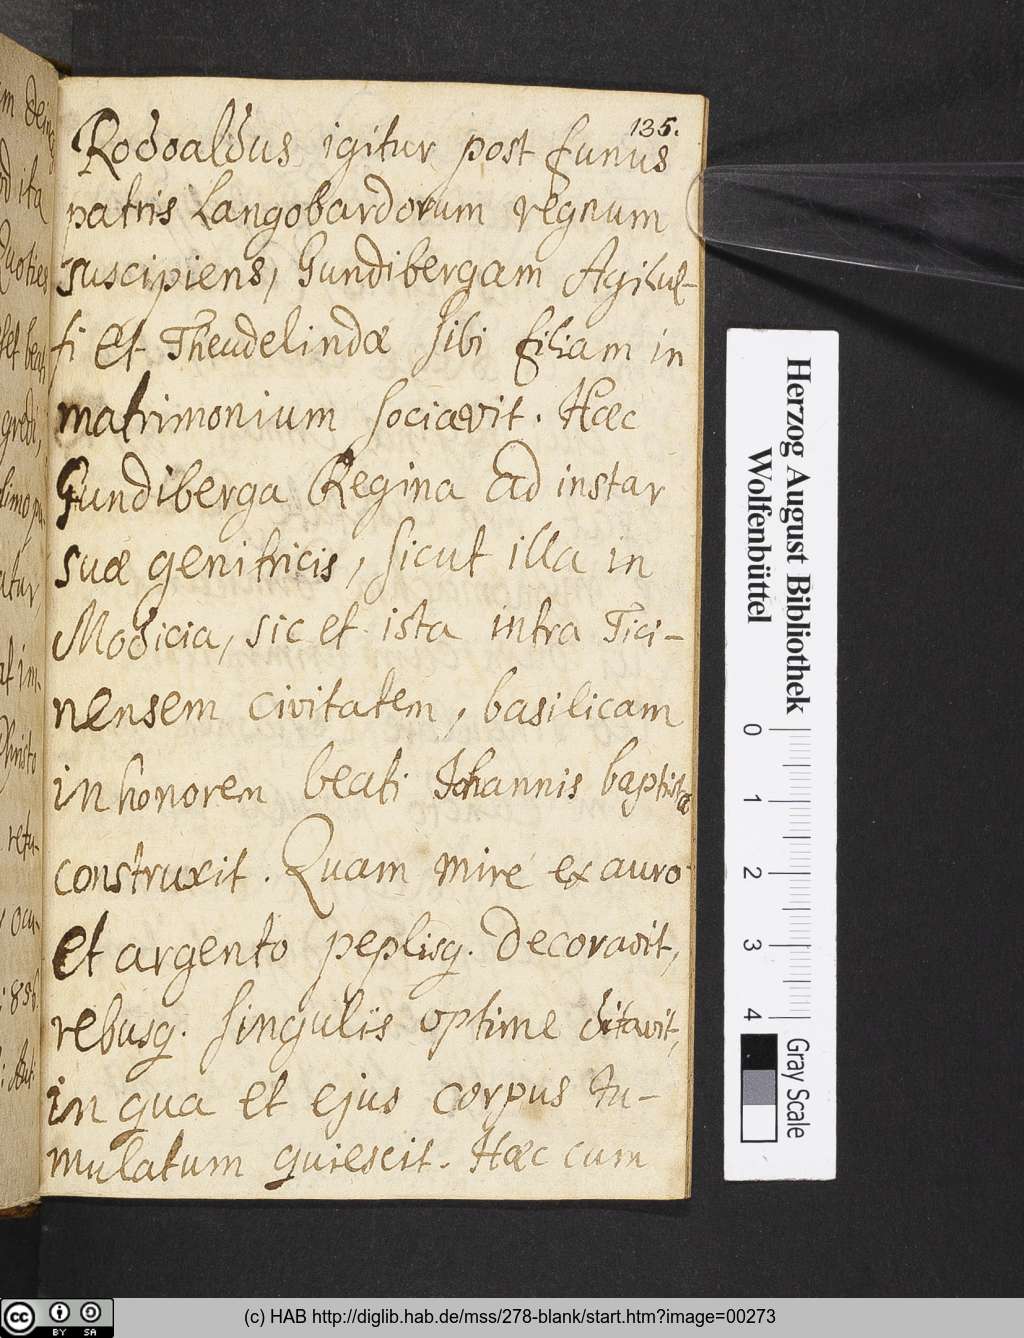 135.
Rodoaldus igitur post funus
patris Langobardorum regnum
suscipiens, Gundibergam Agilul-
fi et Theudelindæ sibi filiam in
matrimonium sociavit. Hæc
Gundiberga Regina ad instar
suæ genitricis, sicut illa in
Modicia, sic et ista intra Tici-
nensem civitatem, basilicam
in honorem beati Johannis baptistæ
construxit. Quam mire ex auro
et argento peplisq. decoravit,
rebusq. singulis optime ditavit,
in qua et ejus corpus tu-
mulatum quiescit. Hæc cum
Herzog August Bibliothek
Wolfenbüttel
0 1 2 3 4
Gray Scale
(c) HAB http://diglib.hab.de/mss/278-blank/start.htm?image=00273
cc BY SA